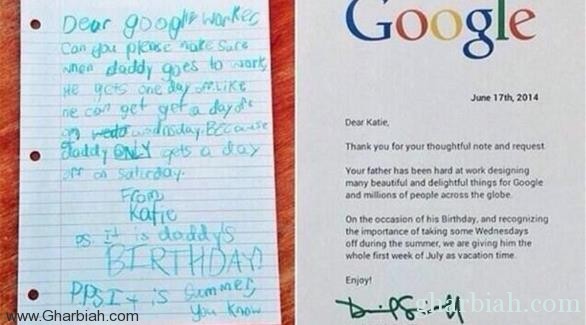 Dear google worker,
Can you please make sure
when daddy goes to work,
He gets one day off. Like
he can get get a day off
on wednesday. Because
daddy ONLY gets a day
off on saturday.
From,
Katie
P.S. It is daddy's
BIRTHDAY!
PPS It is summer,
you know
www.Gharbiah.com
Google
June 17th, 2014
Dear Katie,
Thank you for your thoughtful note and request.
Your father has been hard at work designing
many beautiful and delightful things for Google
and millions of people across the globe.
On the occasion of his Birthday, and recognizing
the importance of taking some Wednesdays
off during the summer, we are giving him the
whole first week of July as vacation time.
Enjoy!
gharbiah.com